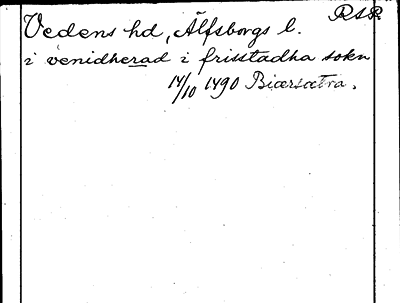 RSR
Vedens hd, Älfsborgs l.
i venidherad i frisstadha sokn
14/10 1490 Biærsætra.